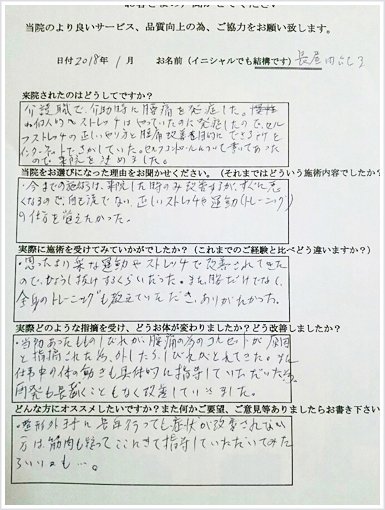 当院のより良いサービス、品質向上の為、ご協力をお願い致します。
日付 2018年 1月 お名前（イニシャルでも結構です）
来院されたのはどうしてですか？
介護職で、介助時に腰痛を発症した。慢性
ストレッチはやっていたのに発症したので、セル
フストレッチの正しいやり方と腰痛改善を目的にできる所を
インターネットでさがしていた。セルフコントロールについて書いてあった
ので来院を決めました。
当院をお選びになった理由をお聞かせください。（それまではどういう施術内容でしたか？
・今までの施術は、来院した時のみ改善するが、すぐに悪
くなるので、正しいストレッチや運動（トレーニング）
の仕方を覚えたかった。
実際に施術を受けてみていかがでしたか？（これまでのご経験と比べどう違いますか？）
・思ったより楽な運動やストレッチで改善されてきた
ので、ひょうし抜けするくらいだった。また腰だけでなく、
全身のトレーニングも教えていただき、ありがたかった。
実際どのような指摘を受け、どうお体が変わりましたか？どう改善しましたか？
・当初あったももの しびれが、腰痛の為のコルセットが原因
と指摘された為、外したらしびれがとれてきた。また
仕事中の体の動きも具体的に指導していただいたら、
再発も長引くこともなく改善していきました。
どんな方にオススメしたいですか？また何かご要望、ご意見等ありましたらお書き下さい
・整形外科に長年行っても症状が改善されない
方は、ここにきて指導していただいてみた
らいいかも…。